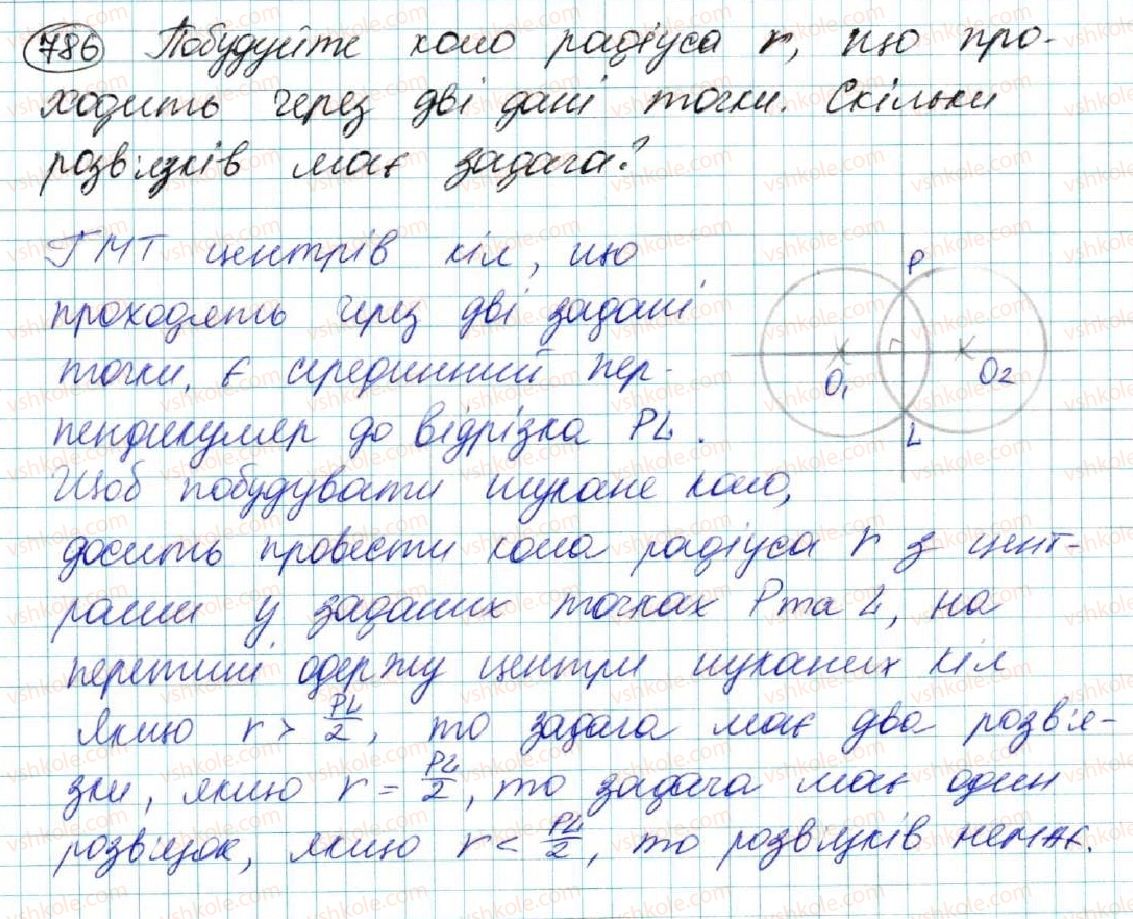 786 Побудуйте коло радіуса r, що про-
ходить через дві дані точки. Скільки
розв'язків має задача?
ГМТ центрів кіл, що
проходять через дві задані
точки, є серединний пер-
пендикуляр до відрізка PL.
Щоб побудувати шукане коло,
досить провести кола радіуса r з цент-
рами у заданих точках P та L, на
перетині одержу центри шуканих кіл
Якщо r > PL/2, то задача має два розв'я-
зки, якщо r = PL/2, то задача має один
розв'язок, якщо r < PL/2, то розв'язків немає.
P
O1
O2
L
vshkole.com